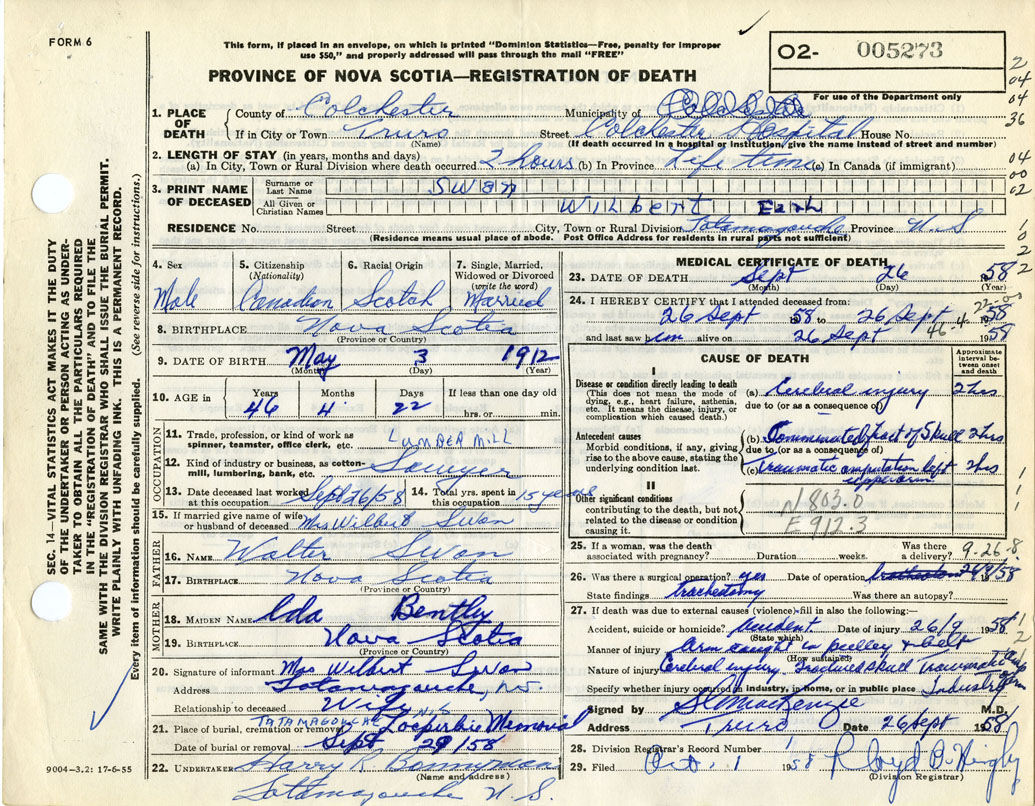 FORM 6
This form, if placed in an envelope, on which is printed "Dominion Statistics—Free, penalty for improper
use $50," and properly addressed will pass through the mail "FREE"
PROVINCE OF NOVA SCOTIA—REGISTRATION OF DEATH
02- 005273
For use of the Department only
2
04
04
36
04
00
02
1. PLACE OF DEATH
County of Colchester Municipality of Colchester
If in City or Town Truro Street Colchester Hospital House No.
(Name) (If death occurred in a hospital or institution, give the name instead of street and number)
2. LENGTH OF STAY (in years, months and days)
(a) In City, Town or Rural Division where death occurred 2 hours (b) In Province Life time (c) In Canada (if immigrant)
3. PRINT NAME OF DECEASED
Surname or Last Name Swan
All Given or Christian Names Wilbert Earl
RESIDENCE No. Street City, Town or Rural Division Tatamagouche Province N.S
(Residence means usual place of abode. Post Office Address for residents in rural parts not sufficient)
4. Sex Male
5. Citizenship (Nationality) Canadian
6. Racial Origin Scotch
7. Single, Married, Widowed or Divorced (write the word) Married
8. BIRTHPLACE Nova Scotia
(Province or Country)
9. DATE OF BIRTH May 3 1912
(Month) (Day) (Year)
10. AGE in Years 46 Months 4 Days 22 If less than one day hrs. or min.
OCCUPATION
11. Trade, profession, or kind of work as spinner, teamster, office clerk, etc. LUMBER MILL
12. Kind of industry or business, as cotton-mill, lumbering, bank, etc. Sawyer
13. Date deceased last worked at this occupation Sept 26/58
14. Total yrs. spent in this occupation 15 years
15. If married give name of wife or husband of deceased Mrs Wilbert Swan
FATHER
16. NAME Walter Swan
17. BIRTHPLACE Nova Scotia
(Province or Country)
MOTHER
18. MAIDEN NAME Ida Bentley
19. BIRTHPLACE Nova Scotia
(Province or Country)
20. Signature of informant Mrs Wilbert Swan
Address Tatamagouche, N.S.
Relationship to deceased Wife
21. Place of burial, cremation or removal TATAMAGOUCHE N.S Memorial
Date of burial or removal Sept 29/58
22. UNDERTAKER Harry R Bonnyman
(Name and address)
Tatamagouche N.S.
MEDICAL CERTIFICATE OF DEATH
23. DATE OF DEATH Sept 26 1958
(Month) (Day) (Year)
24. I HEREBY CERTIFY that I attended deceased from:
26 Sept 1958 to 26 Sept 1958
46-4-22-00
and last saw him alive on 26 Sept 1958
CAUSE OF DEATH
Approximate interval between onset and death
I
Disease or condition directly leading to death
(This does not mean the mode of dying, e.g., heart failure, asthenia, etc. It means the disease, injury, or complication which caused death.)
(a) Cerebral injury 2 hrs
due to (or as a consequence of)
Antecedent causes
Morbid conditions, if any, giving rise to the above cause, stating the underlying condition last.
(b) Comminuted fract of Skull 2 hrs
due to (or as a consequence of)
(c) traumatic amputation left upper arm 2 hrs
II
Other significant conditions
contributing to the death, but not related to the disease or condition causing it.
N 803.0
E 912.3
25. If a woman, was the death associated with pregnancy? Duration weeks. Was there a delivery?
9-26-8
26. Was there a surgical operation? yes Date of operation 26/9/58
State findings tracheotomy Was there an autopsy?
27. If death was due to external causes (violence) fill in also the following:—
Accident, suicide or homicide? accident Date of injury 26/9 1958
(State which)
Manner of injury Arm caught in pulley & belt
(How sustained)
Nature of injury Cerebral injury, Fractured skull Traumatic
Specify whether injury occurred in industry, in home, or in public place Industry
Signed by MacKenzie M.D.
Address Truro Date 26 Sept 1958
28. Division Registrar's Record Number
29. Filed Oct. 1 1958
(Division Registrar)
SEC. 14—VITAL STATISTICS ACT MAKES IT THE DUTY
OF THE UNDERTAKER OR PERSON ACTING AS UNDER-
TAKER TO OBTAIN ALL THE PARTICULARS REQUIRED
IN THE "REGISTRATION OF DEATH" AND TO FILE THE
SAME WITH THE DIVISION REGISTRAR WHO SHALL ISSUE THE BURIAL PERMIT.
WRITE PLAINLY WITH UNFADING INK. THIS IS A PERMANENT RECORD.
Every item of information should be carefully supplied. (See reverse side for instructions.)
9004-3.2: 17-6-55